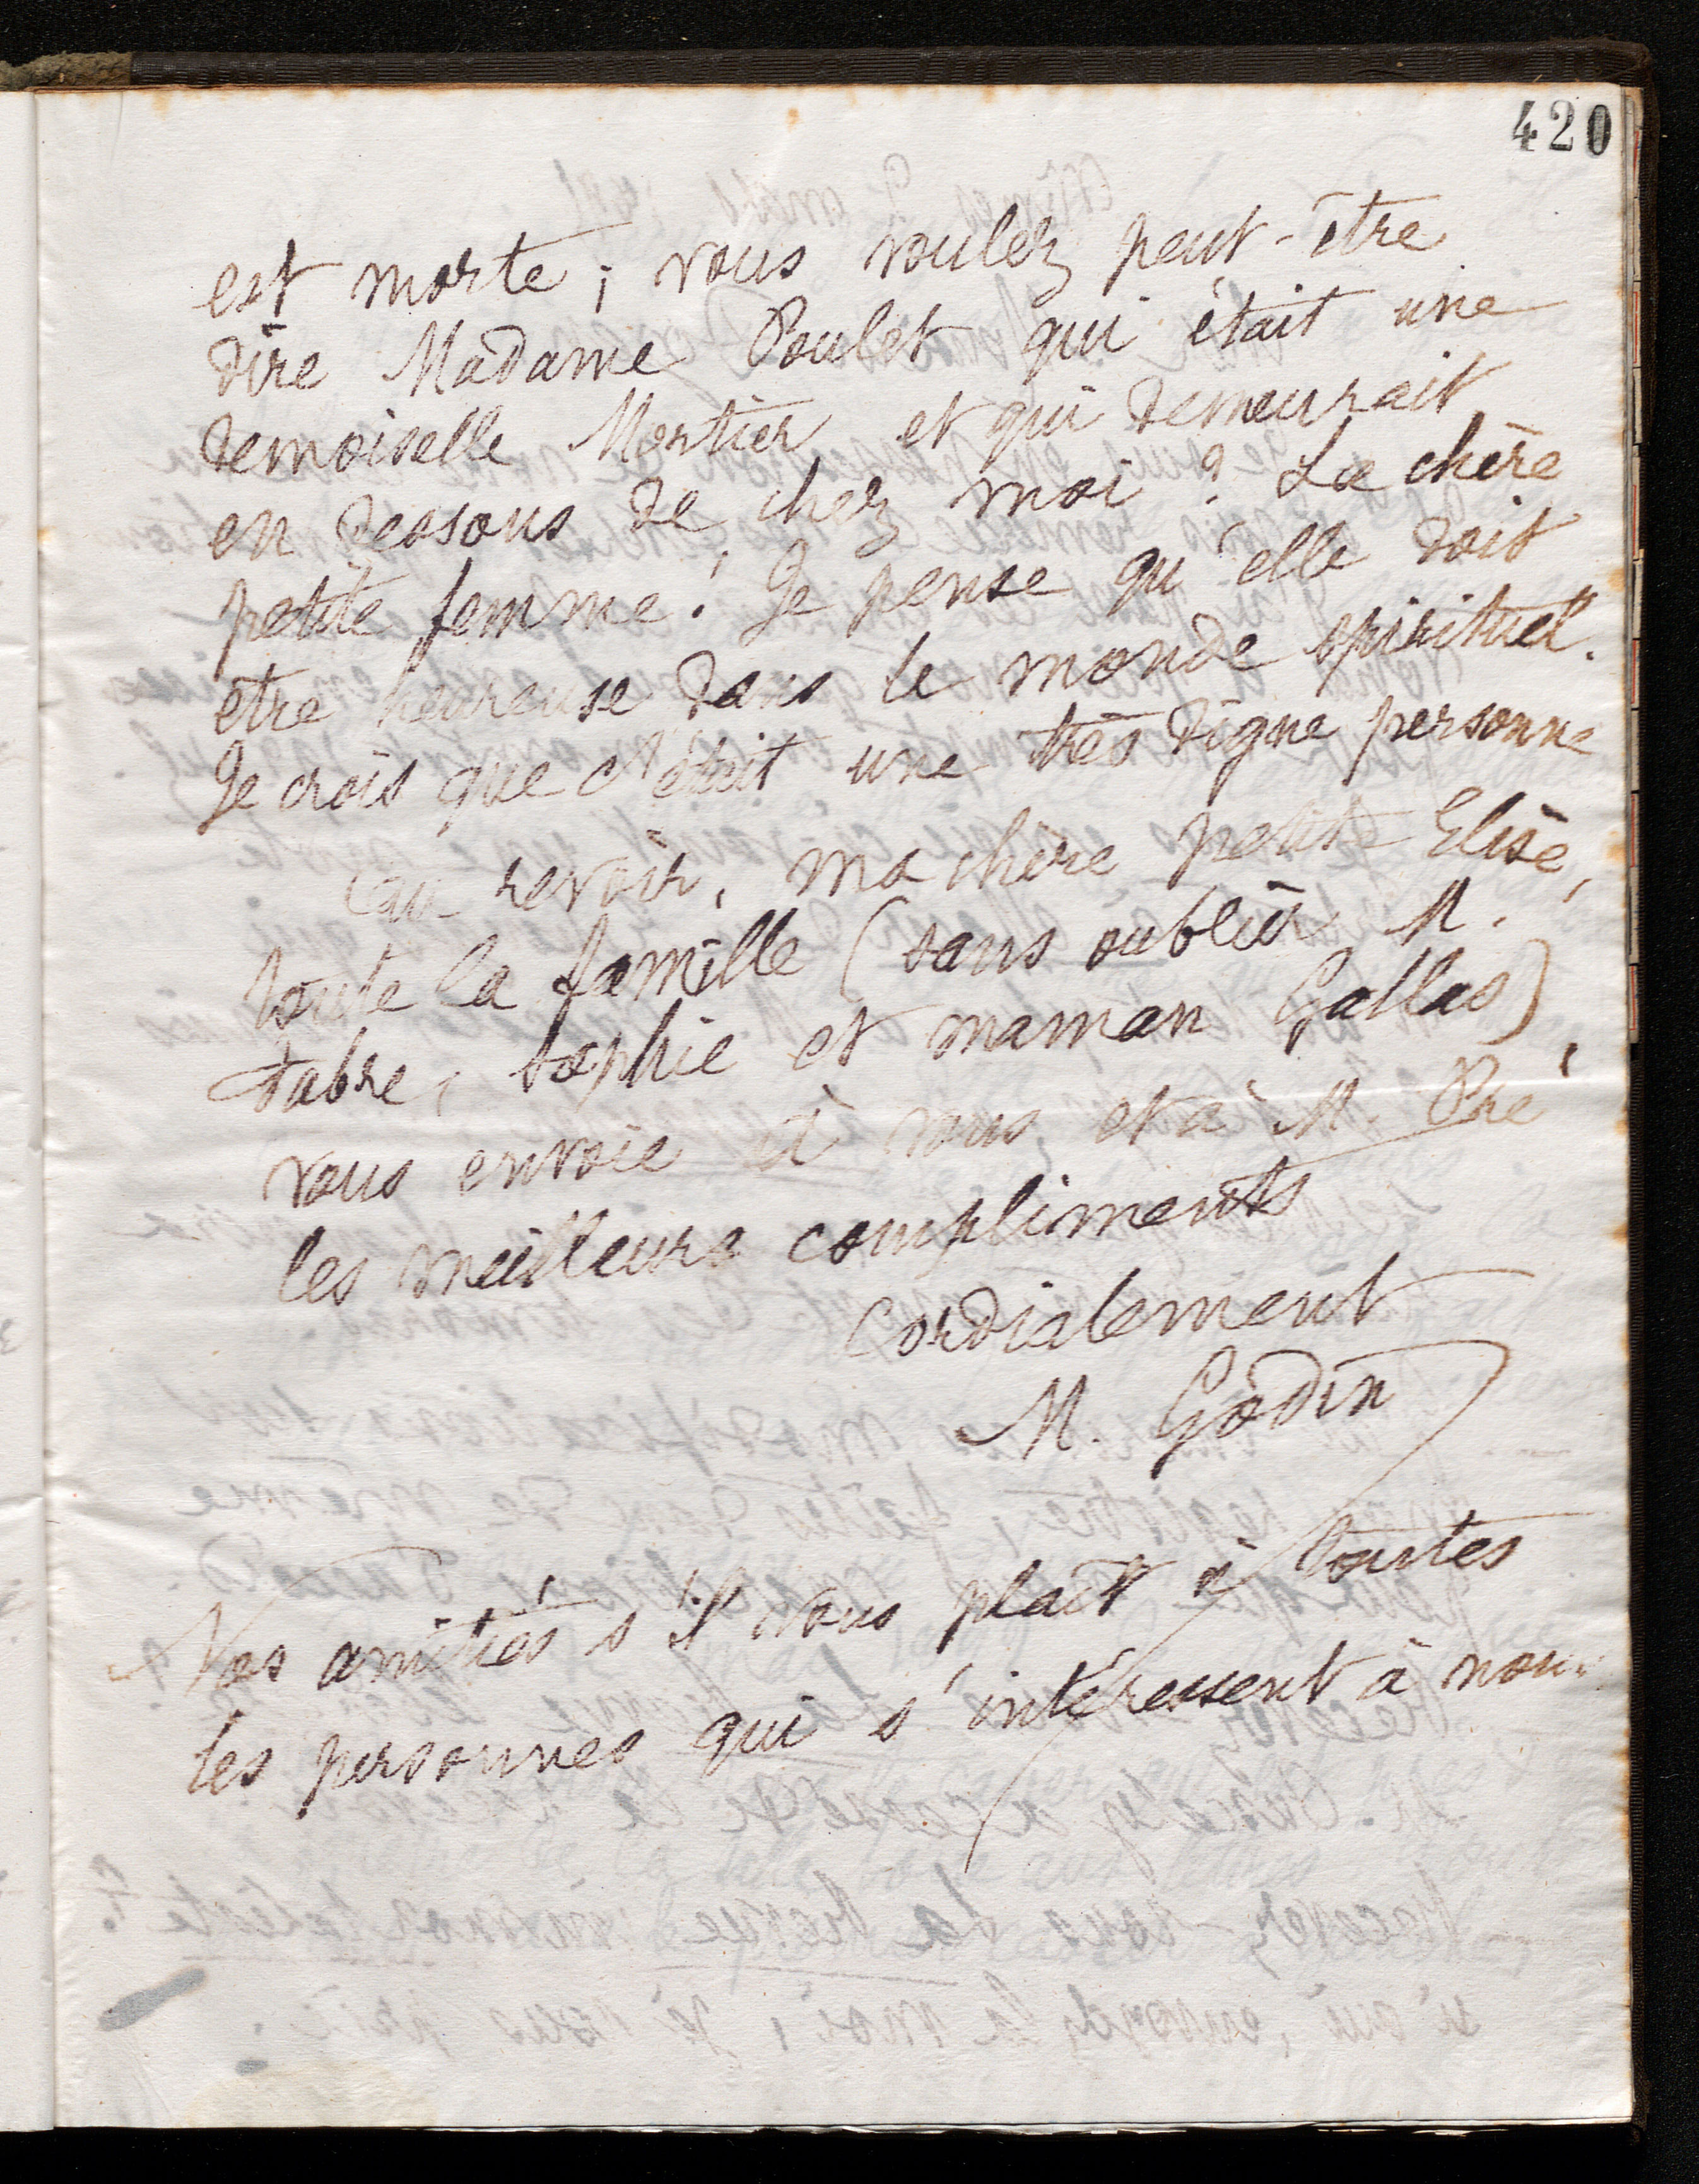 420
est morte ; vous voulez peut-être
dire Madame Poulet qui était une
demoiselle Mortier et qui demeurait
en dessous de chez moi ? La chère
petite femme ! Je pense qu'elle doit
être heureuse dans le monde spirituel.
Je crois que c'était une très digne personne
au revoir, ma chère petite Elise,
toute la famille (sans oublier M.
Fabre, Sophie et maman Gallas),
vous envoie à vous et à M. Pré
les meilleurs compliments
Cordialement
M. Godin
Nos amitiés s'il vous plaît à toutes
les personnes qui s'intéressent à nous